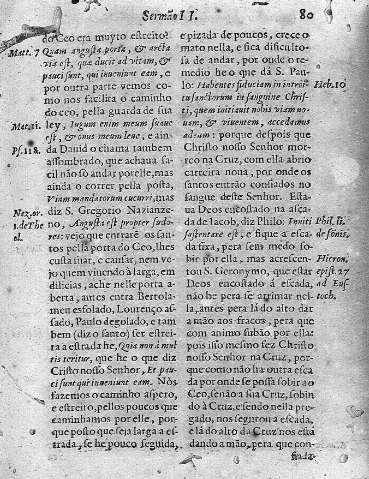 Sermão II. 80
do Ceo era muyto estreito?
Matt. 7 Quam angusta porta, & arcta
via est, que ducit ad vitam, &
pauci sunt, qui inveniunt eam, e
por outra parte vemos como
nos facilita o caminho
do ceo, pella guarda de sua
Mat. 11. ley, Iugum enim meum suave
est, & onus meum leve, e ain-
Ps. 118. da David o chama tambem
assombrado, que achava facil
não só andar por elle, mas
ainda o correr pella posta,
Viam mandatorum cucurri, mas
diz S. Gregorio Nazianzeno,
Augusta est propter sudores:
vejo que entrarẽ os santos
pella porta do Ceo, lhes
custa suar, e cansar, nem vejo
quem viuendo à larga, em
dilicias, ache nelle porta aberta,
antes entra Bertolameu
esfolado, Lourenço assado,
Paulo degolado, e tambem
(diz o santo) ser estreita
a estrada he, Quia non à multis
teritur, que he o que diz
Christo nosso Senhor, Et pauci
sunt qui inveniunt eam. Nòs
fazemos o caminho aspero,
e estreito, pellos poucos que
caminhamos por elle, porque
posto que seja larga a estrada,
se he pouco seguida,
e pizada de poucos, crece o
mato nella, e fica dificultosa
de andar, por onde o remedio
he o que dà S. Paulo:
Habentes fiduciam in introitu Heb. 10
sanctorum in sanguine Christi,
quem initiavit nobis viam novam,
& viventem, accedamus
ad eam: porque despois que
Christo nosso Senhor morreo
na Cruz, com ella abrio
carreira nova, por onde os
santos entrão confiados no
sangue deste Senhor. Estava
Deus encostado na escada
de Iacob, diz Philo,
sustentare est, e fique a escada
fixa, pera sem medo sobir
por ella, mas acrescentou
S. Geronymo, que estar Hieron. epist. 27
Deos encostado á escada,
não he pera se arrimar nella,
antes pera lá do alto dar
a mão aos fracos, pera que
com animo subão por ella:
pois isso mesmo fez Christo
nosso Senhor na Cruz, porque
como não ha outra escada
por onde se possa sobir ao
Ceo, senão a sua Cruz, sobindo
à Cruz, e sendo nella pregado,
nos segurou a escada,
e lá do alto da Cruz nos està
dando a mão, pera que con-